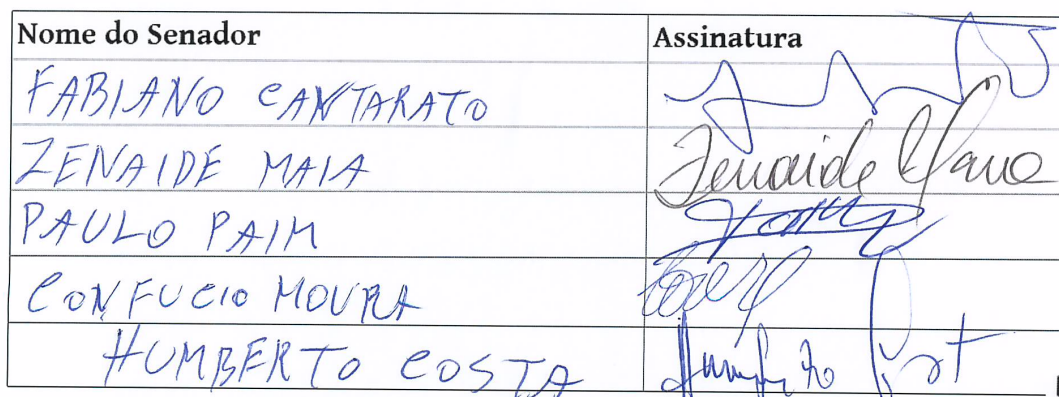 Nome do Senador Assinatura
FABIANO CANTARATO
ZENAIDE MAIA Zenaide Maia
PAULO PAIM
CONFUCIO MOURA
HUMBERTO COSTA Humberto Cost